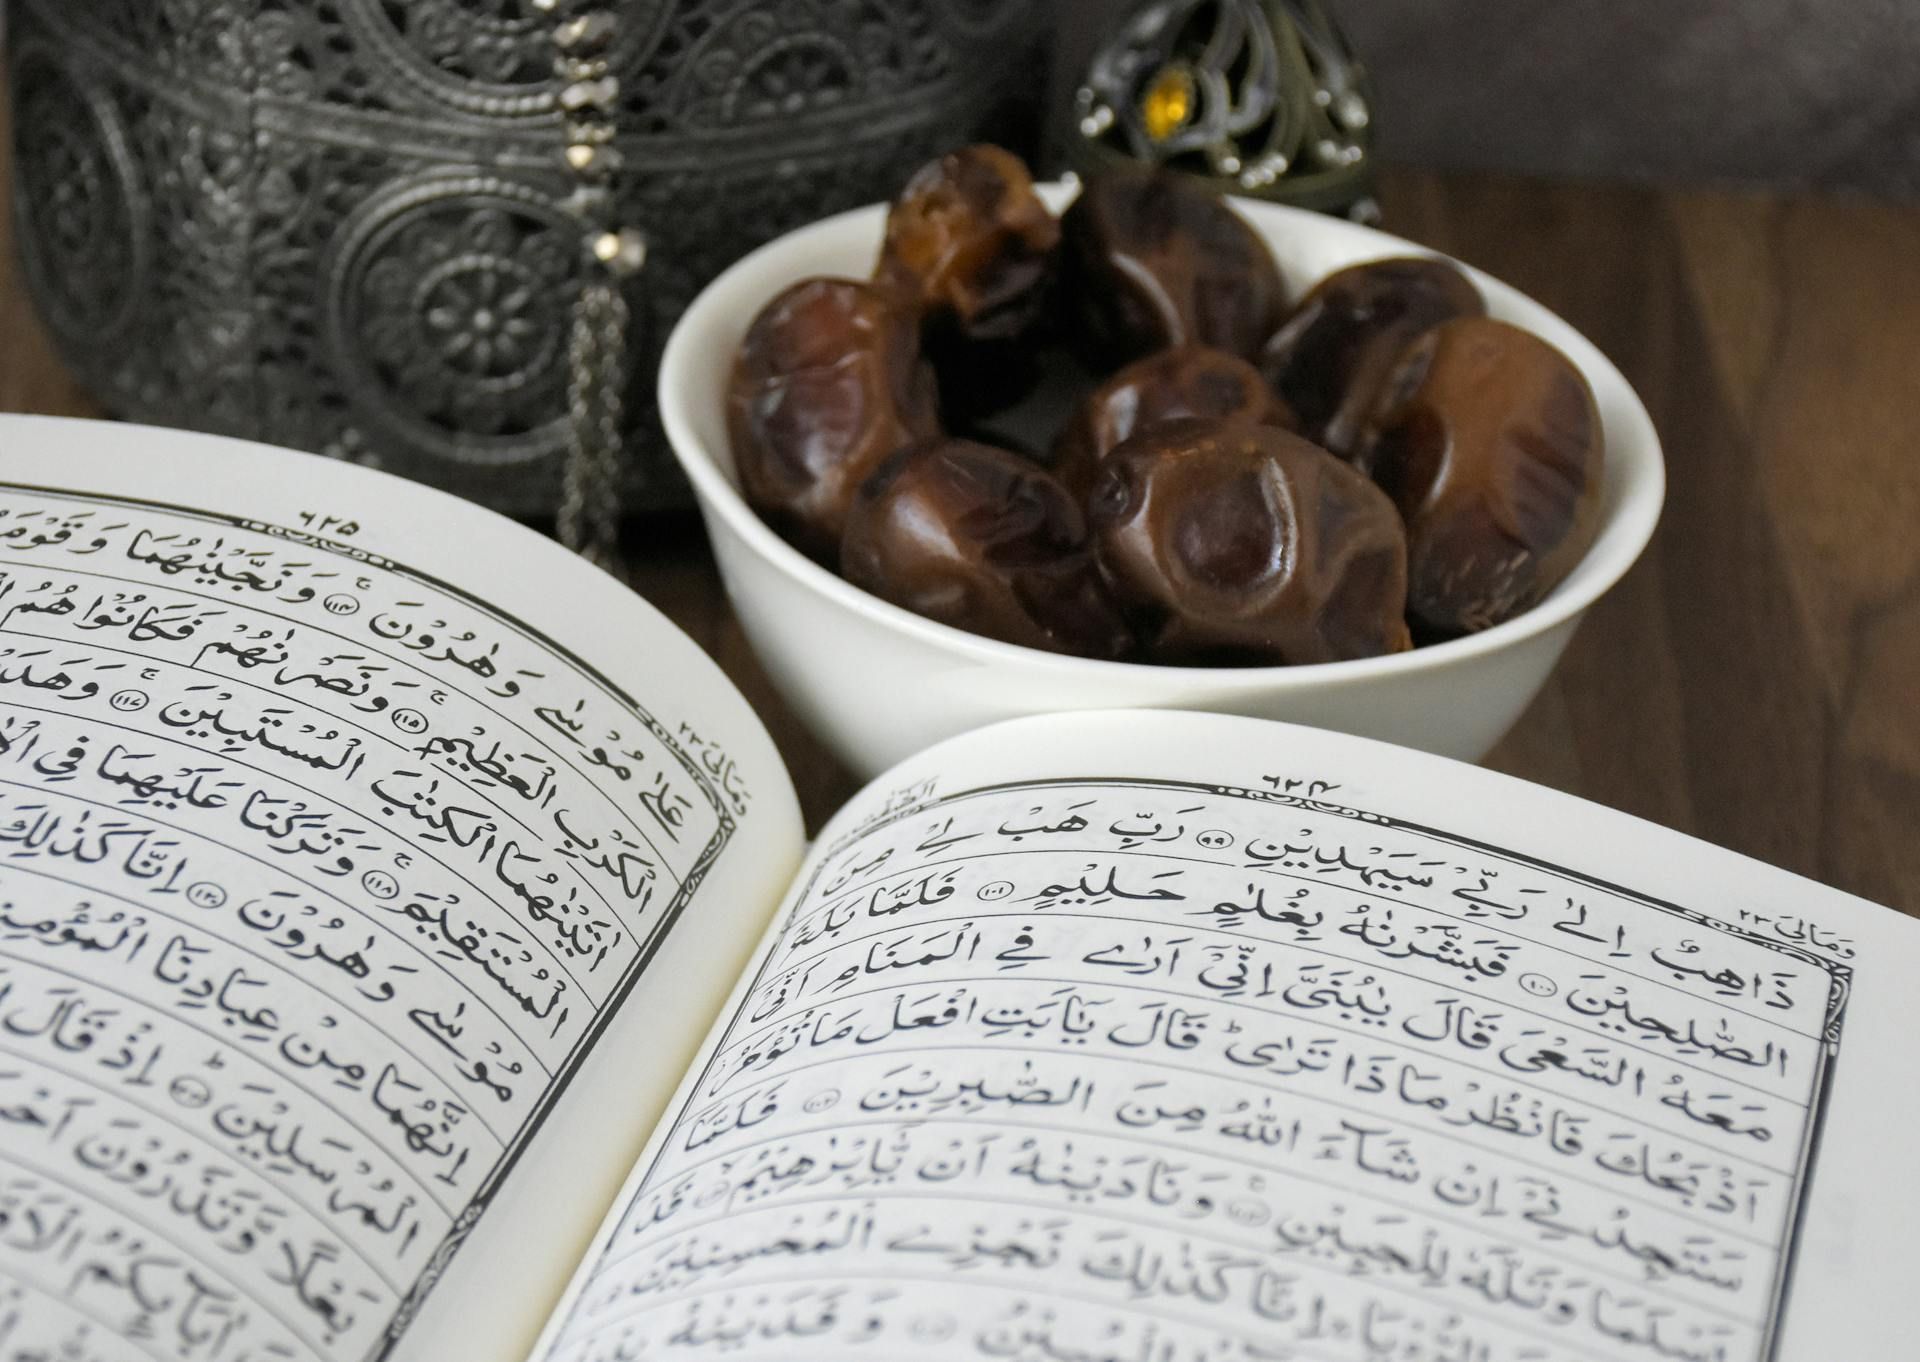 وَمَالِىَ ٢٣
٦٢٤
الصّٰفّٰت
ذَاهِبٌ اِلٰى رَبِّىْ سَيَهْدِيْنِ ٩٩ رَبِّ هَبْ لِىْ مِنَ
الصّٰلِحِيْنَ ١٠٠ فَبَشَّرْنٰهُ بِغُلٰمٍ حَلِيْمٍ ١٠١ فَلَمَّا بَلَغَ
مَعَهُ السَّعْىَ قَالَ يٰبُنَىَّ اِنِّىْٓ اَرٰى فِى الْمَنَامِ اَنِّىْٓ
اَذْبَحُكَ فَانْظُرْ مَاذَا تَرٰى ؕ قَالَ يٰٓاَبَتِ افْعَلْ مَا تُؤْمَرُ
سَتَجِدُنِىْٓ اِنْ شَآءَ اللّٰهُ مِنَ الصّٰبِرِيْنَ ١٠٢ فَلَمَّآ
اَسْلَمَا وَتَلَّهٗ لِلْجَبِيْنِ ١٠٣ وَنَادَيْنٰهُ اَنْ يّٰٓاِبْرٰهِيْمُ ١٠٤ قَدْ
اِنَّا كَذٰلِكَ نَجْزِى الْمُحْسِنِيْنَ
وَفَدَيْنٰهُ
وَمَالِىَ ٢٣
٦٢٥
عَلٰى مُوْسٰى وَهٰرُوْنَ ١١٤ وَنَجَّيْنٰهُمَا وَقَوْمَ
الْكَرْبِ الْعَظِيْمِ ١١٥ وَنَصَرْنٰهُمْ فَكَانُوْا هُمُ
اٰتَيْنٰهُمَا الْكِتٰبَ الْمُسْتَبِيْنَ ١١٧
الْمُسْتَقِيْمَ ١١٨ وَتَرَكْنَا عَلَيْهِمَا فِى
مُوْسٰى وَهٰرُوْنَ ١٢٠ اِنَّا كَذٰلِكَ
اِنَّهُمَا مِنْ عِبَادِنَا
الْمُرْسَلِيْنَ ؕ اِذْ قَالَ
بَعْلًا وَّتَذَرُوْنَ
اٰبَآئِكُمُ